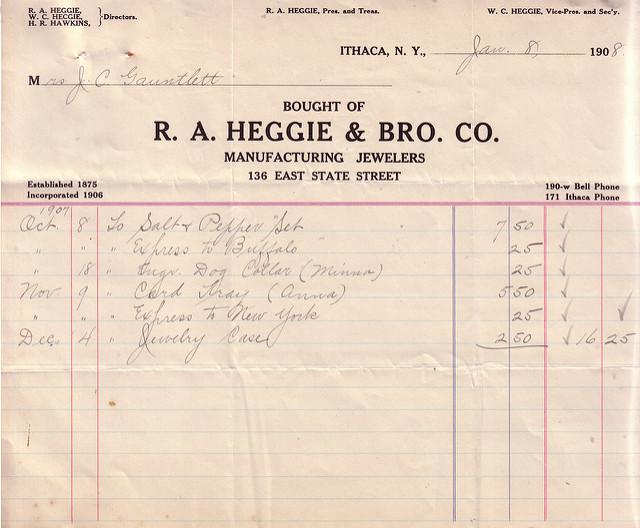 R. A. HEGGIE,
W. C. HEGGIE,
H. R. HAWKINS,
Directors.
R. A. HEGGIE, Pres. and Treas.
W. C. HEGGIE, Vice-Pres. and Sec'y.
ITHACA, N. Y., Jan. 8, 1908.
Mrs J. C. Gauntlett
BOUGHT OF
R. A. HEGGIE & BRO. CO.
MANUFACTURING JEWELERS
136 EAST STATE STREET
Established 1875
Incorporated 1906
190-w Bell Phone
171 Ithaca Phone
1907
Oct. 8 To Salt & Pepper Set 7 50 ✓
" " " Express to Buffalo 25 ✓
" 18 " Engr. Dog Collar (Minna) 25 ✓
Nov. 9 " Card Tray (Anna) 5 50 ✓
" " " Express to New York 25 ✓ ✓
Dec. 4 " Jewelry Case 2 50 ✓ 16 25